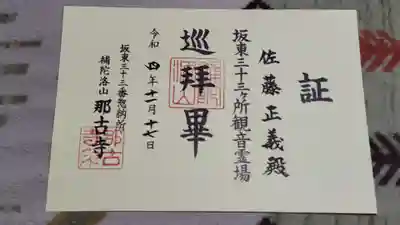 証
佐藤正義殿
坂東三十三ヶ所観音霊場
巡拝畢
令和四年十一月十七日
坂東三十三番惣納所
補陀洛山 那古寺